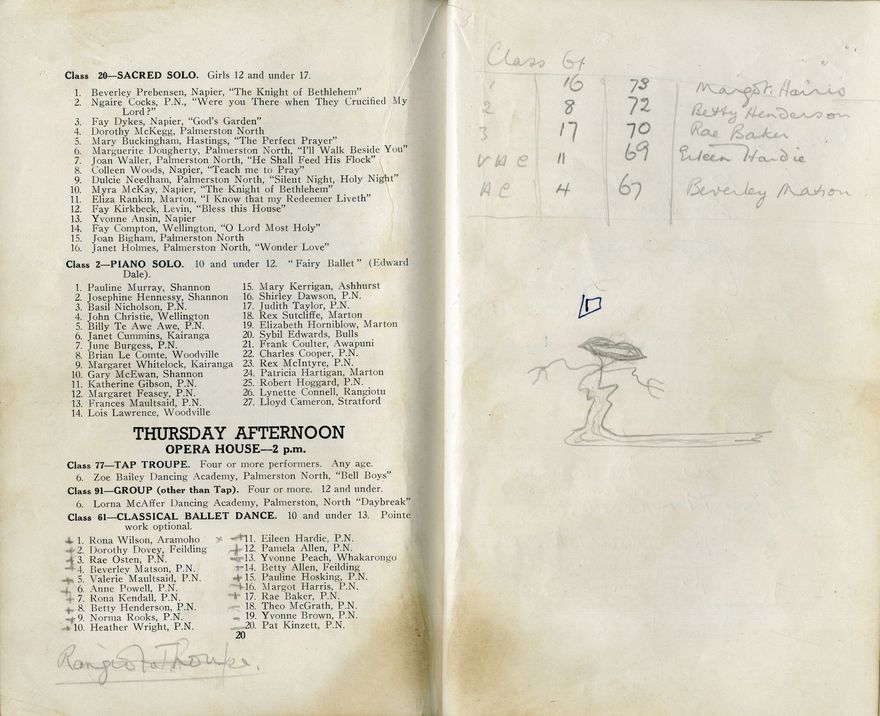 Class 20—SACRED SOLO. Girls 12 and under 17.
1. Beverley Prebensen, Napier, "The Knight of Bethlehem"
2. Ngaire Cocks, P.N., "Were you There when They Crucified My
Lord?"
3. Fay Dykes, Napier, "God's Garden"
4. Dorothy McKegg, Palmerston North
5. Mary Buckingham, Hastings, "The Perfect Prayer"
6. Marguerite Dougherty, Palmerston North, "I'll Walk Beside You"
7. Joan Waller, Palmerston North, "He Shall Feed His Flock"
8. Colleen Woods, Napier, "Teach me to Pray"
9. Dulcie Needham, Palmerston North, "Silent Night, Holy Night"
10. Myra McKay, Napier, "The Knight of Bethlehem"
11. Eliza Rankin, Marton, "I Know that my Redeemer Liveth"
12. Fay Kirkbeck, Levin, "Bless this House"
13. Yvonne Ansin, Napier
14. Fay Compton, Wellington, "O Lord Most Holy"
15. Joan Bigham, Palmerston North
16. Janet Holmes, Palmerston North, "Wonder Love"
Class 2—PIANO SOLO. 10 and under 12. "Fairy Ballet" (Edward
Dale).
1. Pauline Murray, Shannon
2. Josephine Hennessy, Shannon
3. Basil Nicholson, P.N.
4. John Christie, Wellington
5. Billy Te Awe Awe, P.N.
6. Janet Cummins, Kairanga
7. June Burgess, P.N.
8. Brian Le Comte, Woodville
9. Margaret Whitelock, Kairanga
10. Gary McEwan, Shannon
11. Katherine Gibson, P.N.
12. Margaret Feasey, P.N.
13. Frances Maultsaid, P.N.
14. Lois Lawrence, Woodville
15. Mary Kerrigan, Ashhurst
16. Shirley Dawson, P.N.
17. Judith Taylor, P.N.
18. Rex Sutcliffe, Marton
19. Elizabeth Horniblow, Marton
20. Sybil Edwards, Bulls
21. Frank Coulter, Awapuni
22. Charles Cooper, P.N.
23. Rex McIntyre, P.N.
24. Patricia Hartigan, Marton
25. Robert Hoggard, P.N.
26. Lynette Connell, Rangiotu
27. Lloyd Cameron, Stratford
THURSDAY AFTERNOON
OPERA HOUSE—2 p.m.
Class 77—TAP TROUPE. Four or more performers. Any age.
6. Zoe Bailey Dancing Academy, Palmerston North, "Bell Boys"
Class 91—GROUP (other than Tap). Four or more. 12 and under.
6. Lorna McAffer Dancing Academy, Palmerston, North "Daybreak"
Class 61—CLASSICAL BALLET DANCE. 10 and under 13. Pointe
work optional.
1. Rona Wilson, Aramoho
2. Dorothy Dovey, Feilding
3. Rae Osten, P.N.
4. Beverley Matson, P.N.
5. Valerie Maultsaid, P.N.
6. Anne Powell, P.N.
7. Rona Kendall, P.N.
8. Betty Henderson, P.N.
9. Norma Rooks, P.N.
10. Heather Wright, P.N.
11. Eileen Hardie, P.N.
12. Pamela Allen, P.N.
13. Yvonne Peach, Whakarongo
14. Betty Allen, Feilding
15. Pauline Hosking, P.N.
16. Margot Harris, P.N.
17. Rae Baker, P.N.
18. Theo McGrath, P.N.
19. Yvonne Brown, P.N.
20. Pat Kinzett, P.N.
20
Class 61
1 16 73 Margot Harris
2 8 72 Betty Henderson
3 17 70 Rae Baker
VHC 11 69 Eileen Hardie
HC 4 67 Beverley Matson